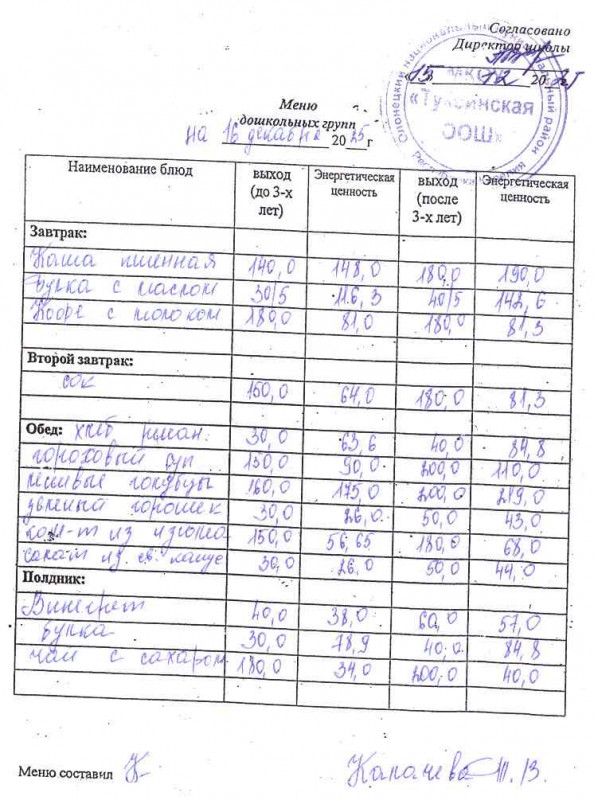 Согласовано
Директор школы
«15» 12 2025
Олонецкий национальный муниципальный район
МКОУ
«Туксинская
ООШ»
Республика Карелия
Меню
дошкольных групп
на 16 декабря 2025 г
Наименование блюд выход (до 3-х лет) Энергетическая ценность выход (после 3-х лет) Энергетическая ценность
Завтрак:
Каша пшенная 140,0 148,0 180,0 190,0
Булка с маслом 30/5 116,3 40/5 142,6
Кофе с молоком 180,0 81,0 180,0 81,3
Второй завтрак:
сок 150,0 64,0 180,0 81,3
Обед: хлеб ржан. 30,0 63,6 40,0 84,8
гороховый суп 150,0 90,0 200,0 110,0
ленивые голубцы 160,0 175,0 200,0 219,0
зеленый горошек 30,0 26,0 50,0 43,0
ком-т из изюма 150,0 56,65 180,0 68,0
салат из св. капус 30,0 26,0 50,0 44,0
Полдник:
Винегрет 40,0 38,0 60,0 57,0
булка 30,0 78,9 40,0 84,8
чай с сахаром 180,0 34,0 200,0 40,0
Меню составил К Капачева Т.В.